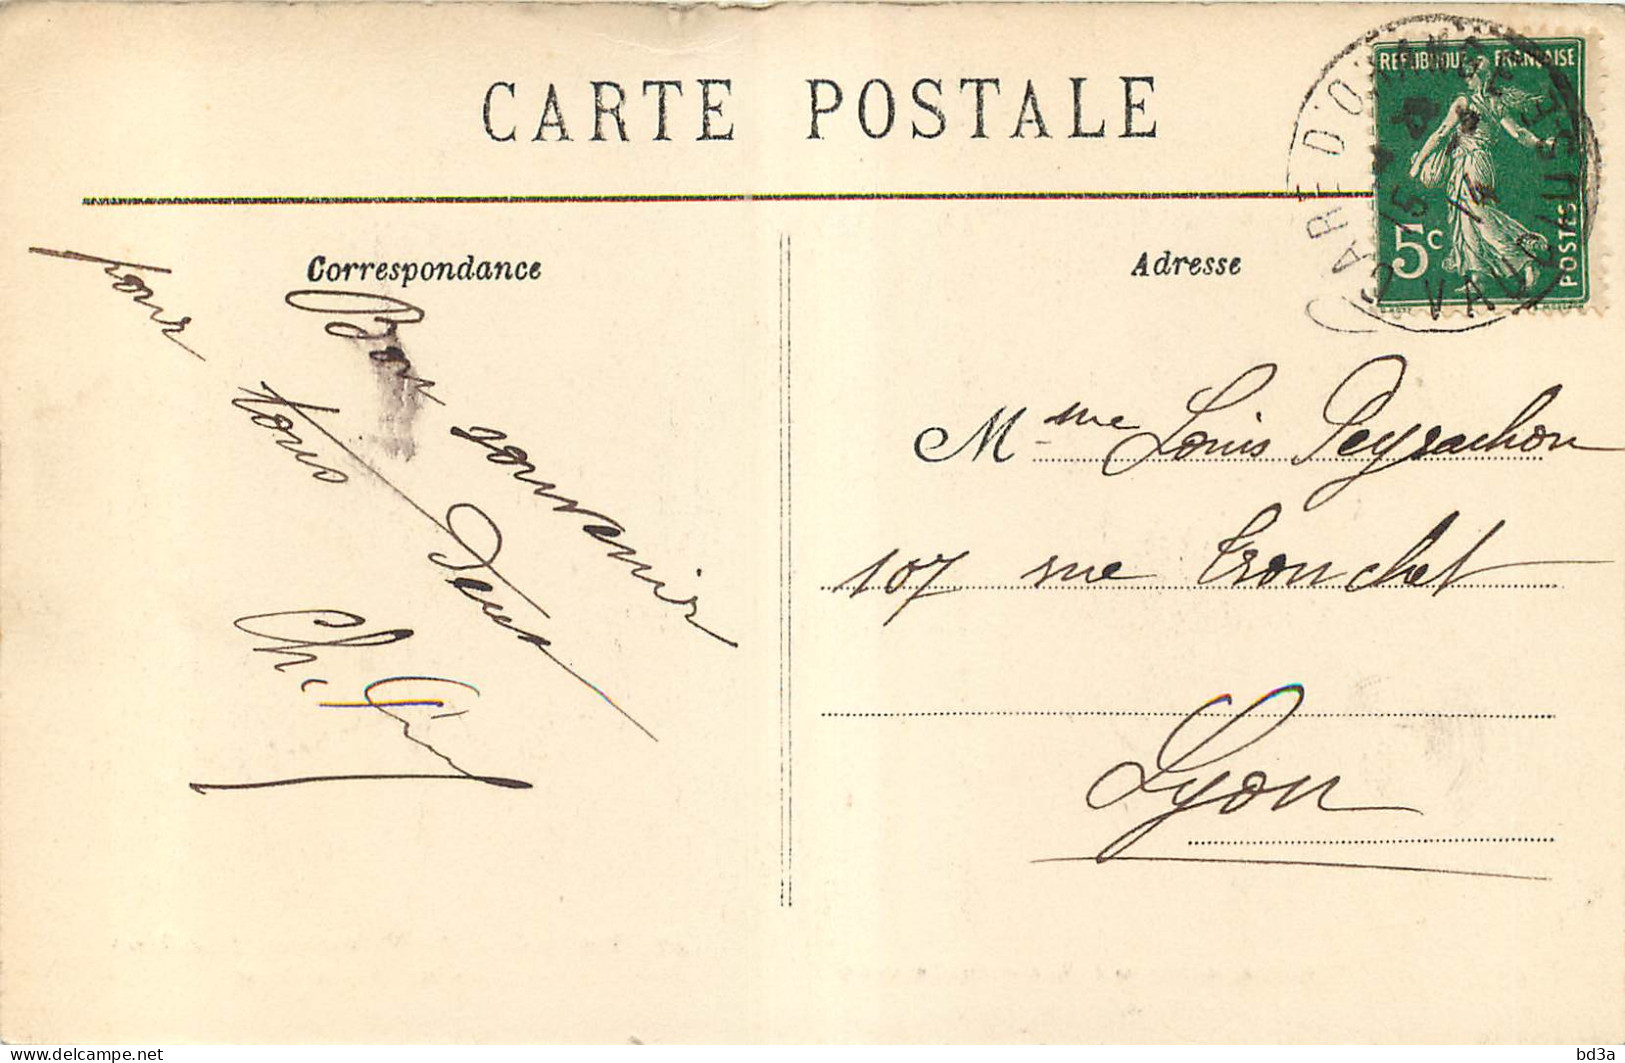 CARTE POSTALE
Correspondance
Adresse
REPUBLIQUE FRANÇAISE
5c
POSTES
GARE D'ORANGE
VAUCLUSE
15 14
Bon souvenir
pour tous Deux
Ch.
Mme Louis Peyrachon
107 rue Tronchet
Lyon
delcampe.net
bd3a